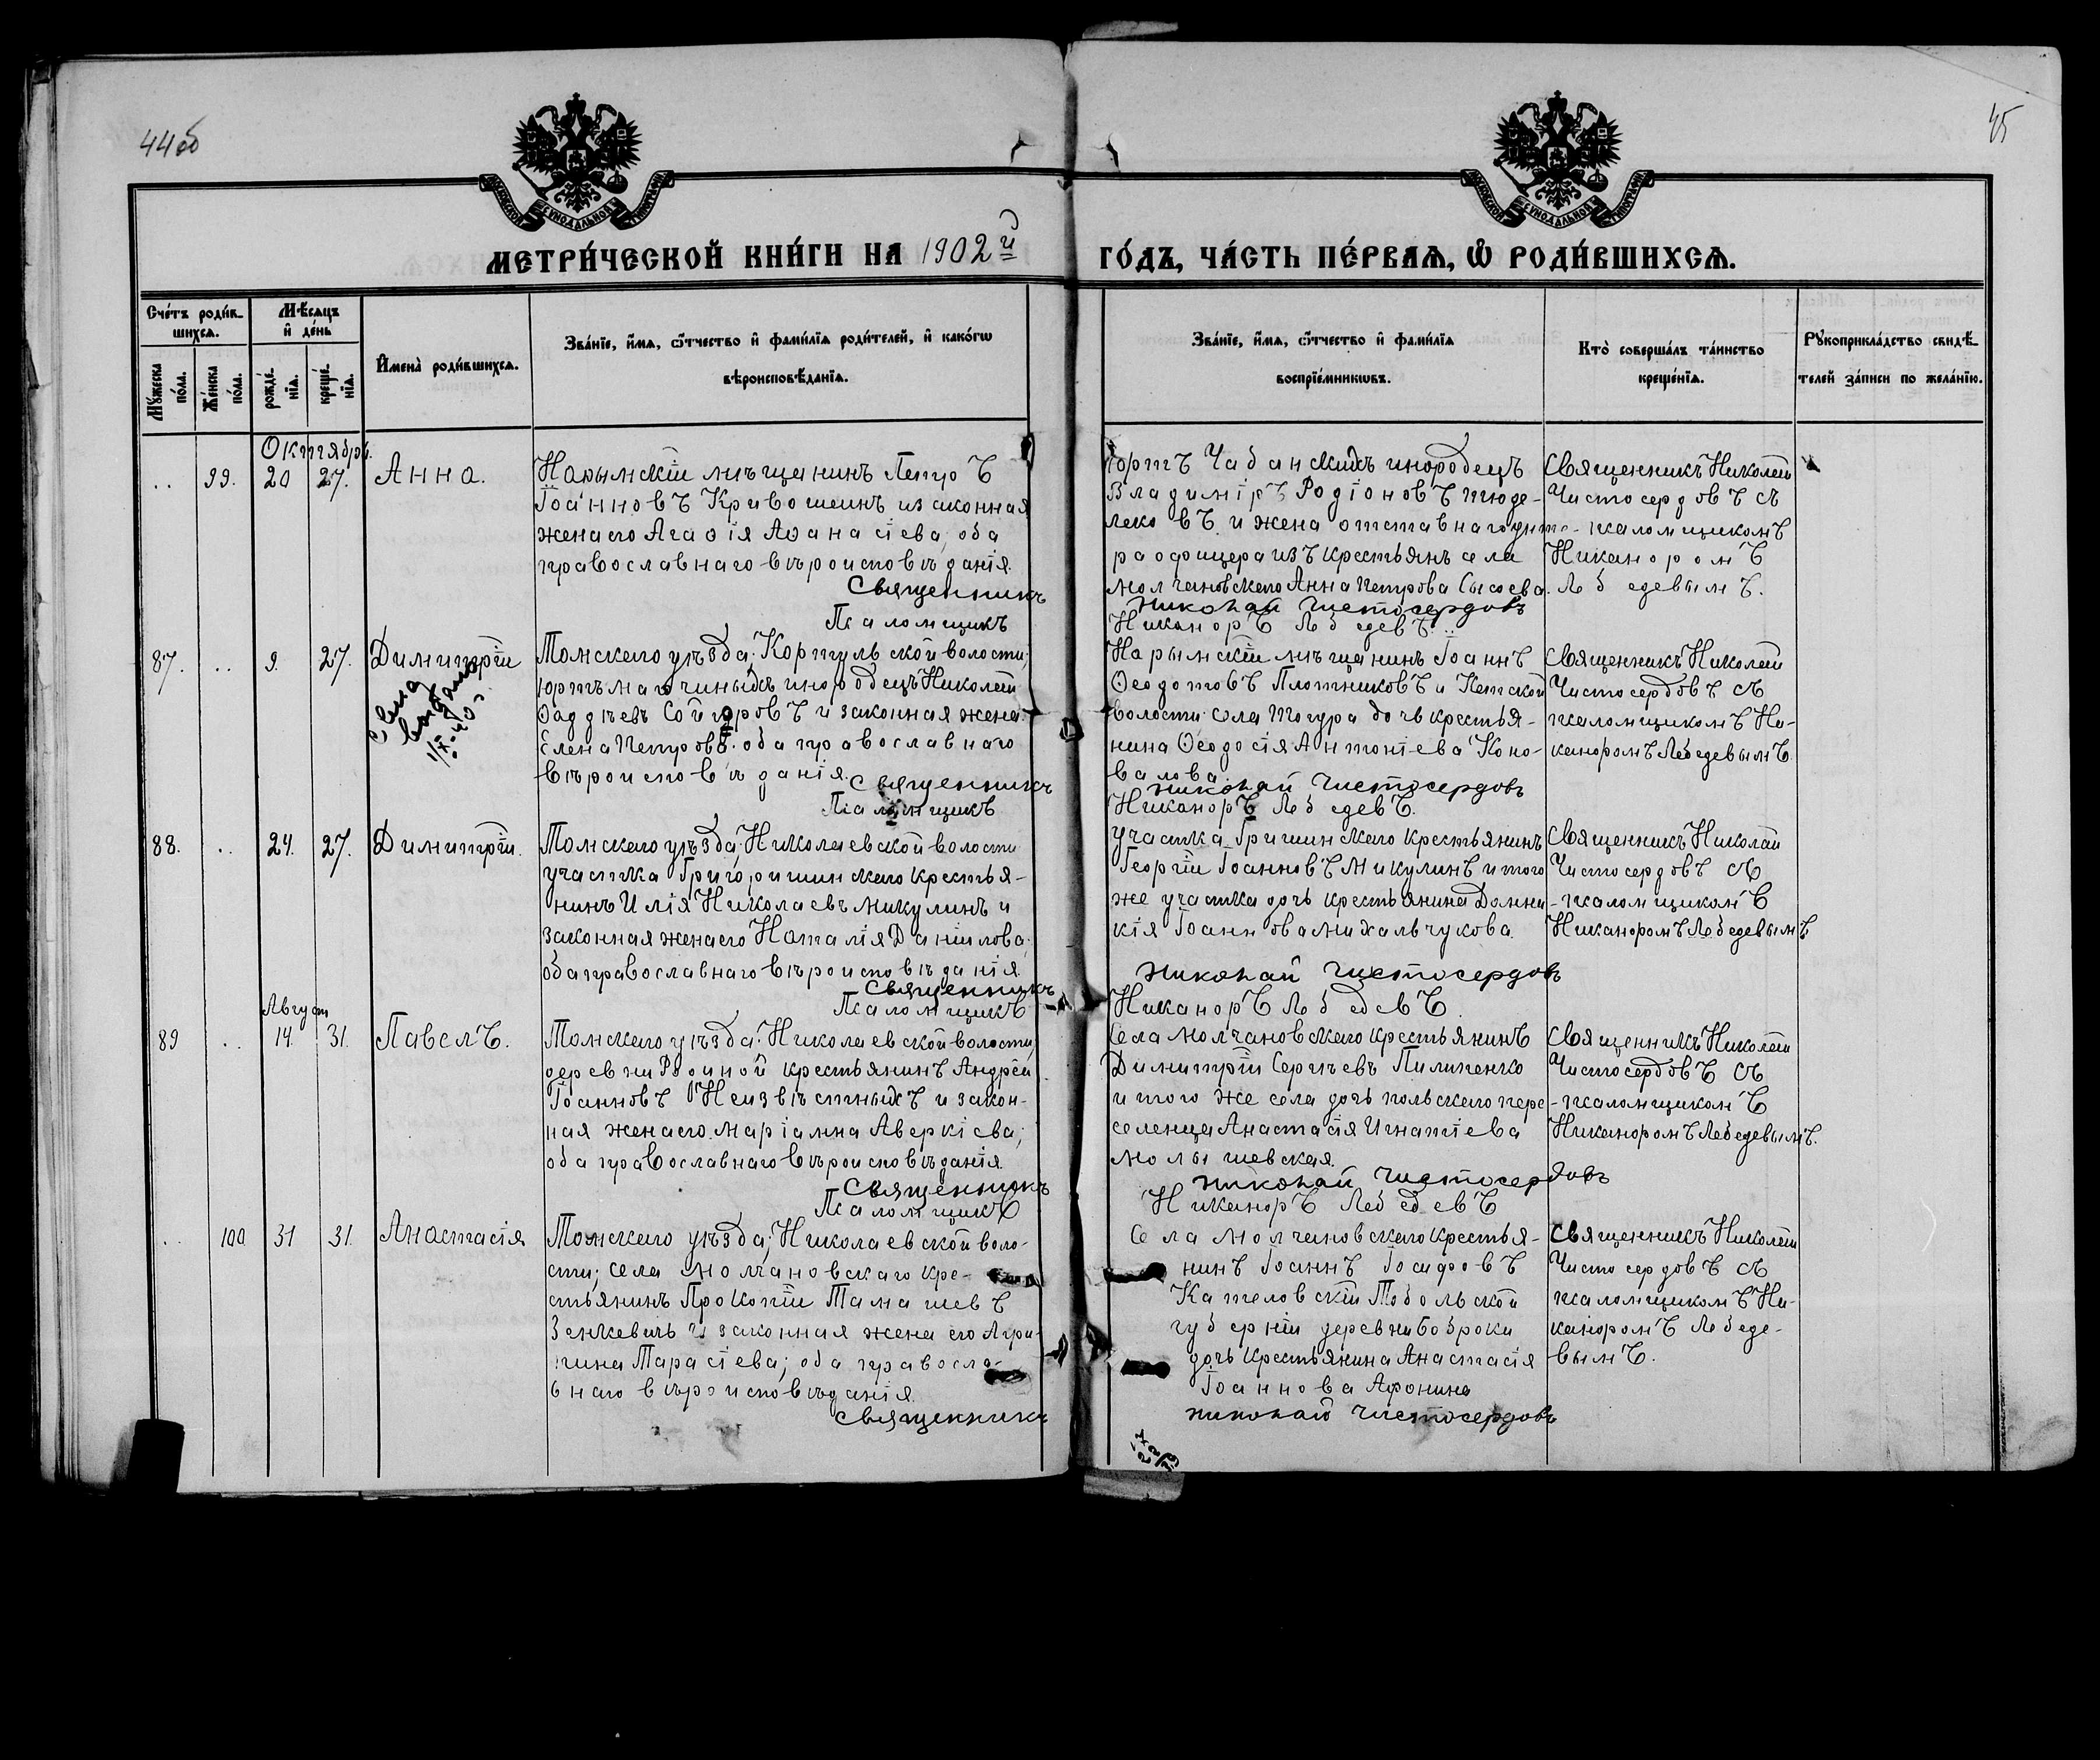 44об
45
МОСКОВСКОЙ СѴНОДАЛЬНОЙ ТИПОГРАФІИ
МОСКОВСКОЙ СѴНОДАЛЬНОЙ ТИПОГРАФІИ
МЕТРИ́ЧЕСКОЙ КНИ́ГИ НА 1902й ГО́ДЪ, ЧА́СТЬ ПЕ́РВАѦ, Ѽ РОДИ́ВШИХСѦ.
Сче́тъ роди́в-
шихсѧ.
Мꙋ́жеска по́ла.
Же́нска по́ла.
Мѣ́сѧцъ
и҆ де́нь
рожде́-нїѧ.
креще́-нїѧ.
И҆мена̀ роди́вшихсѧ.
Зва́нїе, и҆́мѧ, ѻ҆́тчество и҆ фами́лїѧ роди́телей, и҆ како́гѡ
вѣроисповѣ́данїѧ.
Зва́нїе, и҆́мѧ, ѻ҆́тчество и҆ фами́лїѧ
воспрїе́мникѡвъ.
Кто̀ соверша́лъ та́инство
креще́нїѧ.
Рꙋкоприкла́дство свидѣ́-
телей за́писи по жела́нїю.
Октябрь.
.. 99. 20 27. Анна.
Нарымскій мѣщанинъ Петръ
Іоанновъ Кривошеинъ и законная
жена его Агаѳія Аѳанасіева, оба
православнаго вѣроисповѣданія.
Священникъ
Псаломщикъ
Юртъ Чабанскихъ инородецъ
Владиміръ Родіоновъ Тюде-
лековъ и жена отставнаго унте-
ра офицера изъ крестьянъ села
Молчановскаго Анна Петрова Сысоева.
Николай Чистосердовъ
Никаноръ Лебедевъ.
Священникъ Николай
Чистосердовъ съ
псаломщикомъ
Никаноромъ
Лебедевымъ.
87. .. 9. 27. Димитрій
1/IX-40
Томскаго уѣзда; Кортульской волости,
юртъ инородецъ Николай
Ѳаддѣевъ и законная жена
Елена Петрова. оба православнаго
вѣроисповѣданія.
Священникъ
Псаломщикъ
Нарымскій мѣщанинъ Іоаннъ
Ѳеодотовъ Плотниковъ и Кетской
волости села Тогура дочь крестья-
нина Ѳеодосія Антоніева Коно-
валова.
Николай Чистосердовъ
Никаноръ Лебедевъ.
Священникъ Николай
Чистосердовъ съ
псаломщикомъ Ни-
каноромъ Лебедевымъ
88. .. 24. 27. Димитрій.
Томскаго уѣзда; Николаевской волости
участка Григоришинскаго крестья-
нинъ Илія Николаевъ Микулинъ и
законная жена его Наталія Даніилова
оба православнаго вѣроисповѣданія.
Священникъ
Псаломщикъ
участка Гришинскаго крестьянинъ
Георгій Іоанновъ Микулинъ и того
же участка дочь крестьянина Домни-
кія Іоаннова Михальчукова.
Николай Чистосердовъ
Никаноръ Лебедевъ.
Священникъ Николай
Чистосердовъ съ
псаломщикомъ
Никаноромъ Лебедевымъ
Август
89 .. 14. 31. Павелъ.
Томскаго уѣзда; Николаевской волости,
деревни крестьянинъ Андрей
Іоанновъ Неизвѣстныхъ и закон-
ная жена его Маріамна Аверкіева;
оба православнаго вѣроисповѣданія
Священникъ
Псаломщикъ
Села Молчановскаго крестьянинъ
Димитрій Сергѣевъ Пилипенко
и того же села дочь польскаго пере-
селенца Анастасія Игнатіева
Малышевская.
Николай Чистосердовъ
Никаноръ Лебедевъ
Священникъ Николай
Чистосердовъ съ
псаломщикомъ
Никаноромъ Лебедевымъ.
.. 100 31 31. Анастасія
Томскаго уѣзда; Николаевской воло-
сти; села Молчановскаго кре-
стьянинъ Прокопій
Зенкевичъ и законная жена его Агри-
пина Тарасіева; оба правосла-
внаго вѣроисповѣданія.
Священникъ
Села Молчановскаго крестья-
нинъ Іоаннъ Іосифовъ
Тобольской
губерніи деревни
дочь крестьянина Анастасія
Іоаннова Афонина
Николай Чистосердовъ
Священникъ Николай
Чистосердовъ съ
псаломщикомъ Ни-
каноромъ Лебеде-
вымъ.